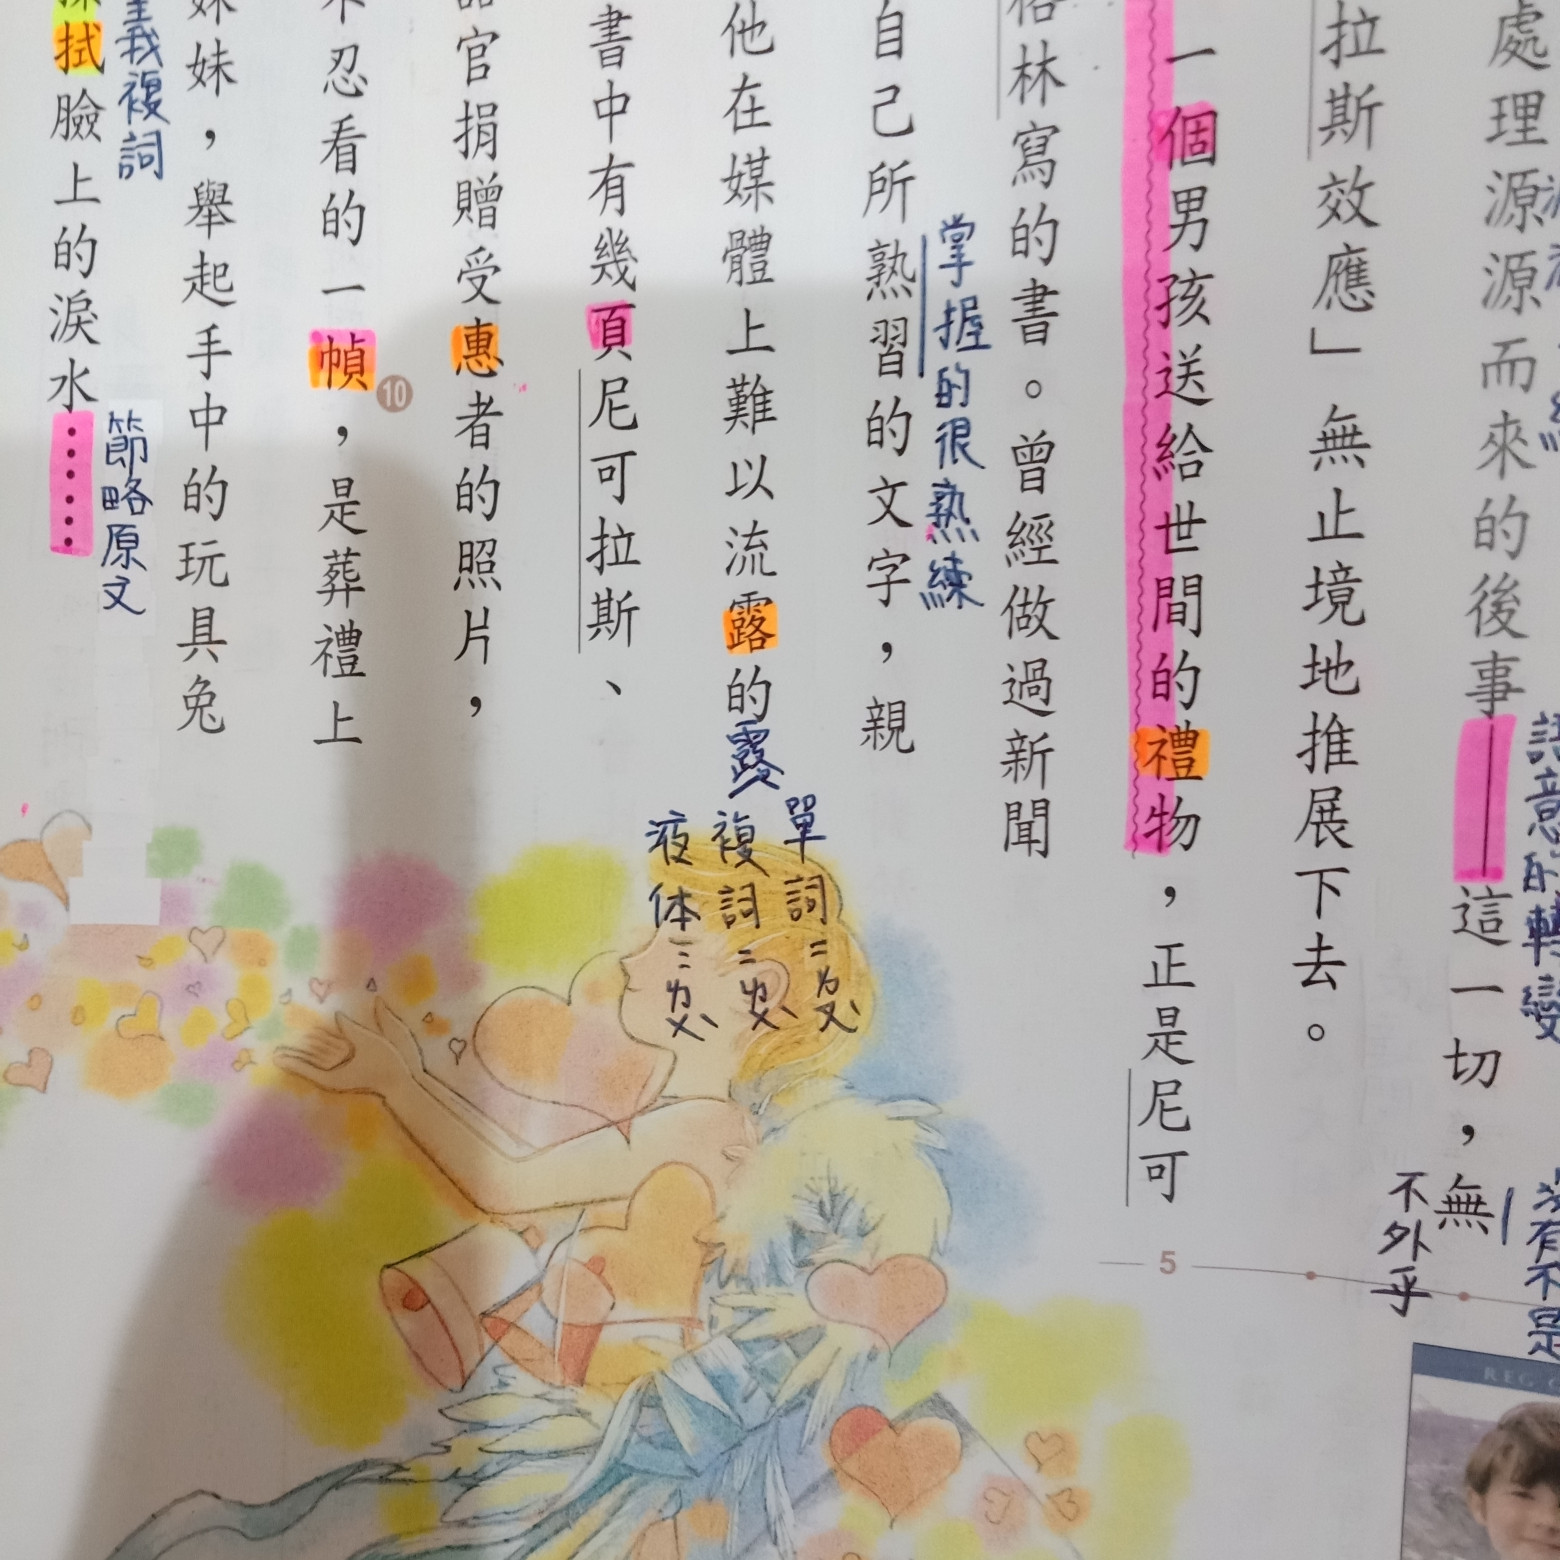 處理源源而來的後事——這一切，無
語意的轉變
沒有不是
不外乎
拉斯效應」無止境地推展下去。
一個男孩送給世間的禮物，正是尼可
5
林寫的書。曾經做過新聞
掌握的很熟練
自己所熟習的文字，親
他在媒體上難以流露的
露
單詞ㄌㄡˋ
複詞ㄌㄨˋ
液体ㄌㄨˋ
書中有幾頁尼可拉斯、
器官捐贈受惠者的照片，
不忍看的一幀，是葬禮上
10
妹妹，舉起手中的玩具兔
義複詞
拭臉上的淚水……
節略原文
REG